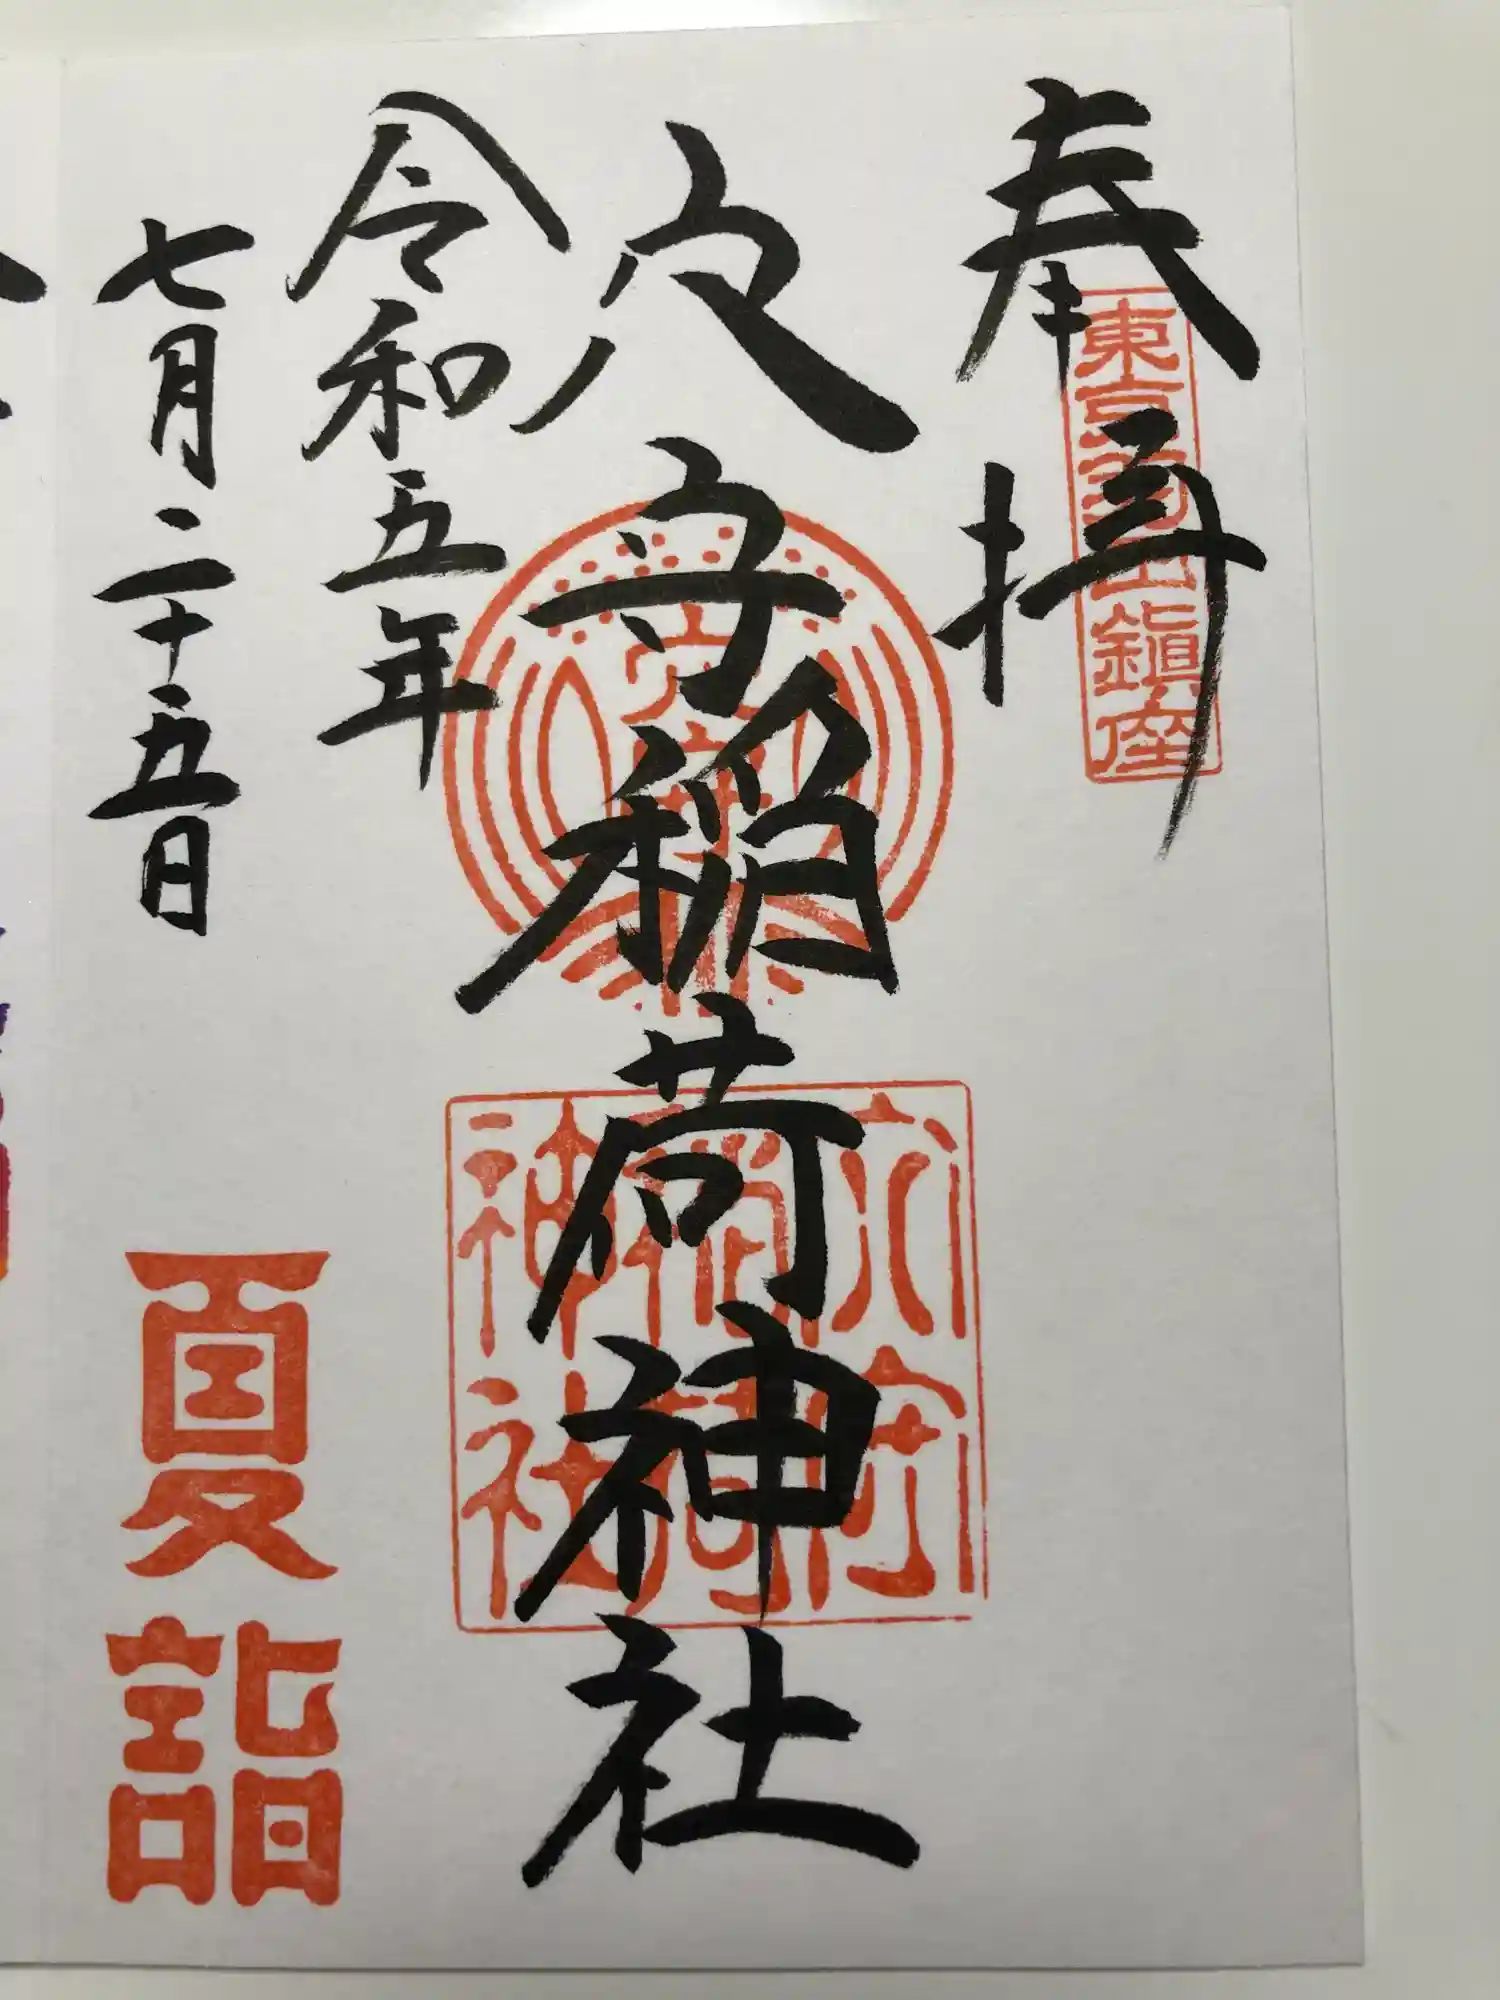 奉拝
東京羽田鎮座
穴守稲荷神社
穴守
穴守
稲荷
神社
令和五年
七月二十五日
夏詣